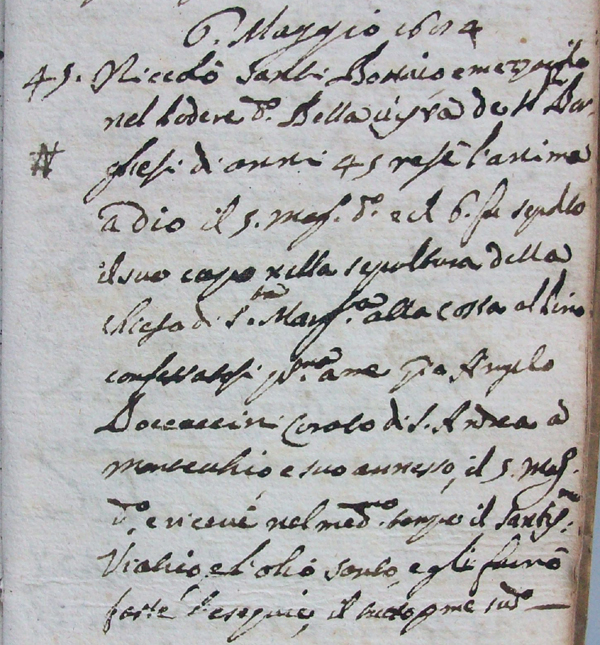 6. Maggio 1684
45. Niccolò Santi Bottaio e mezzaiolo
nel Podere dº. Della Cigna de SS. Bor-
ghesi di anni 45 rese l'anima
a Dio il 5. mag. dº. e il 6. fu sepolto
il suo capo nella sepoltura della
chiesa di S.ta Marg.ta alla costa al Pino
confessatosi p.ma a me Angelo
Boccaccini Curato di S. Andrea à
montecchio, e suo annesso, il 5. mag.
dº. e ricevé nel med.mo tempo il Santis.mo
Viatico e l'olio Santo, e gli furnò
fatte l'esequie, il tutto p me sudº.